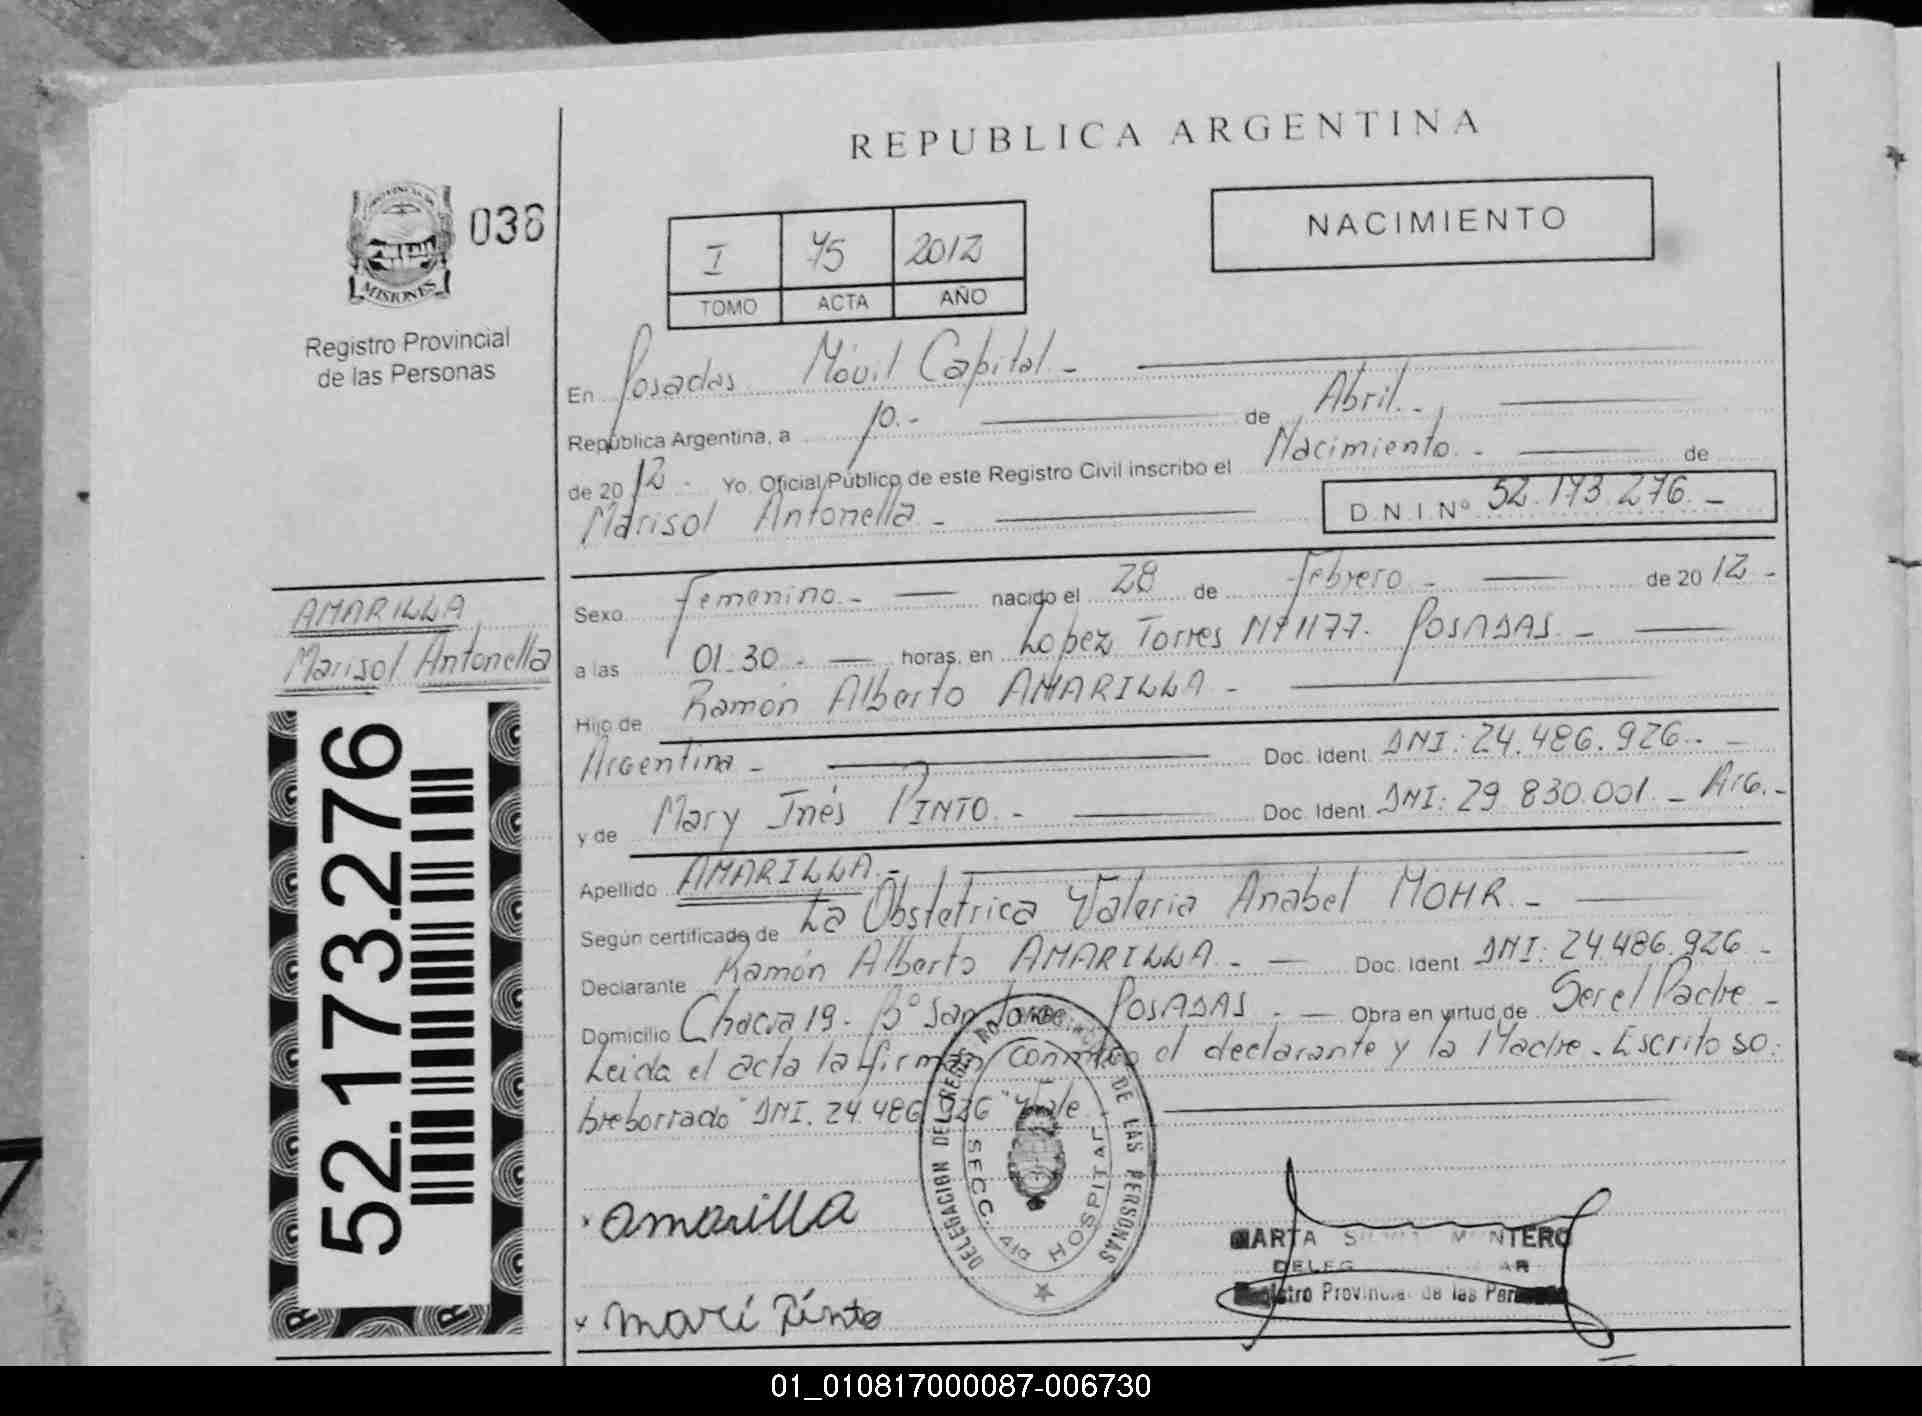 REPUBLICA ARGENTINA
PROVINCIA DE
MISIONES
038
Registro Provincial
de las Personas
I 45 2012
TOMO ACTA AÑO
NACIMIENTO
En Posadas Móvil Capital.-
República Argentina, a 10.- de Abril.-
de 2012.- Yo, Oficial Público de este Registro Civil inscribo el Nacimiento.- de
Marisol Antonella.- D.N.I.Nº 52.173.276.-
AMARILLA
Marisol Antonella
52.173.276
Sexo Femenino.- nacido el 28 de Febrero.- de 2012.-
a las 01.30.- horas, en Lopez Torres Nº 1177. POSADAS.-
Hijo de Ramón Alberto AMARILLA.-
Argentina.- Doc. Ident. DNI: 24.486.926.-
y de Mary Inés PINTO.- Doc. Ident. DNI: 29.830.001.- Arg.-
Apellido AMARILLA.-
Según certificado de La Obstetrica Valeria Anabel MOHR.-
Declarante Ramón Alberto AMARILLA.- Doc. Ident. DNI: 24.486.926.-
Domicilio Chacra 19. Bº San POSADAS.- Obra en virtud de Ser el Padre.-
Leida el acta la firman conmigo el declarante y la Madre. Escrito so:
breborrado "DNI. 24.486.926" Vale.
DELEGACION DEL REGISTRO PROVINCIAL DE LAS PERSONAS
SECC. 4ta HOSPITAL
x amarilla
x mari Pinto
MARTA MONTERO
Registro Provincial de las Personas
01_010817000087-006730